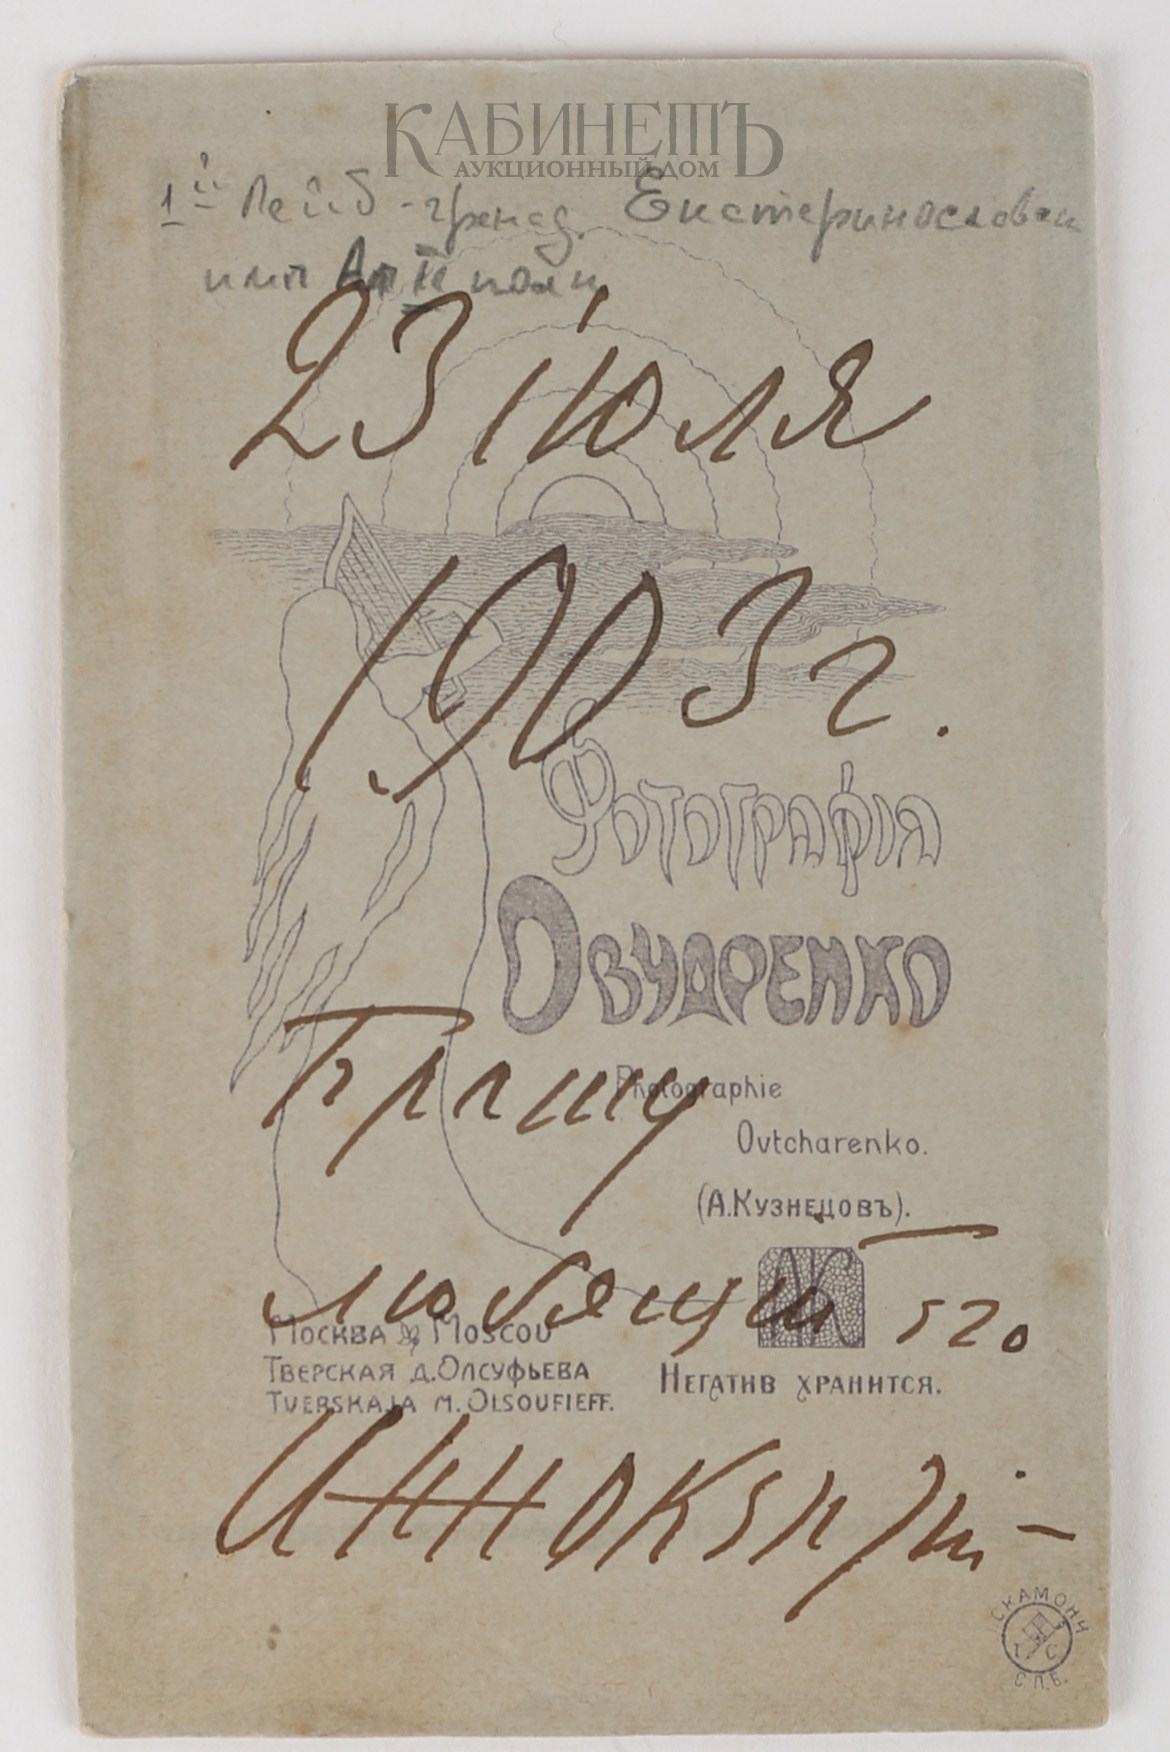 КАБИНЕТЪ
АУКЦИОННЫЙ ДОМ
1й Лейб-гренад. Екатеринославск
имп Ал II полк
23 іюля
1903 г.
Фотографія
Овчаренко
Photographie
Ovtcharenko.
(А.Кузнецовъ).
Брату
любящій его
Москва Moscou
Тверская д.Олсуфьева
Tverskaja м. Olsoufieff.
Негатив хранится.
Иннокентій
СКАМОНИ
I С
С.П.Б.